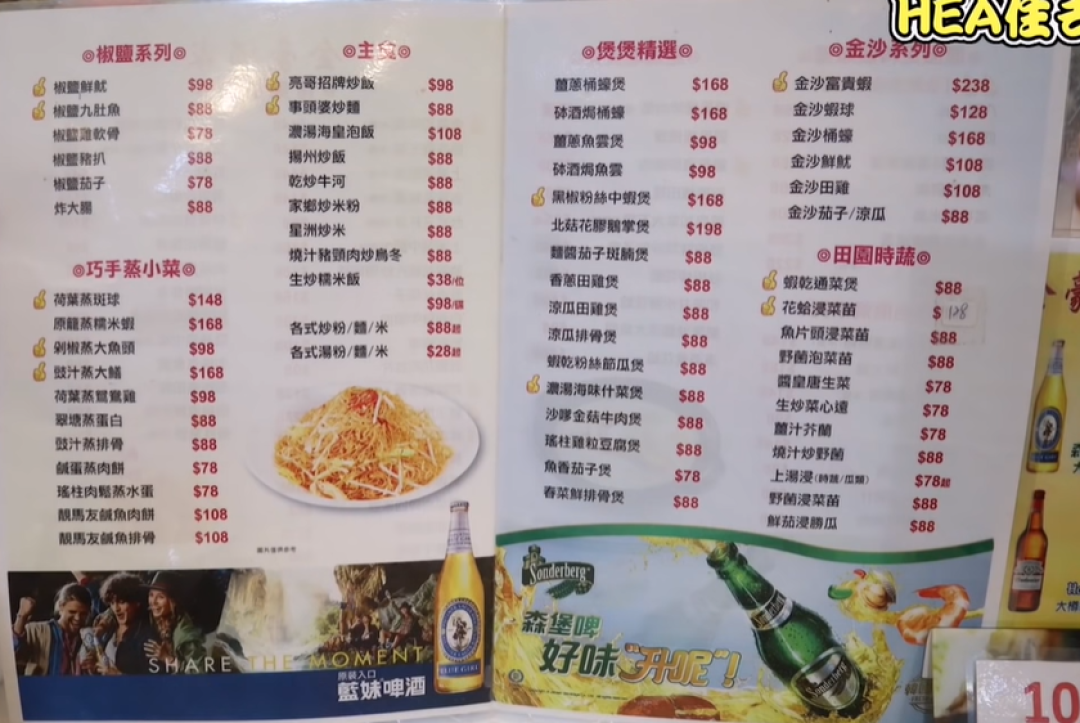 HEA住
◎椒鹽系列◎
椒鹽鮮魷 $98
椒鹽九肚魚 $88
椒鹽雞軟骨 $78
椒鹽豬扒 $88
椒鹽茄子 $78
炸大腸 $88
◎巧手蒸小菜◎
荷葉蒸斑球 $148
原籠蒸糯米蝦 $168
剁椒蒸大魚頭 $98
豉汁蒸大鱔 $168
荷葉蒸鴛鴦雞 $98
翠塘蒸蛋白 $88
豉汁蒸排骨 $88
鹹蛋蒸肉餅 $78
瑤柱肉鬆蒸水蛋 $78
靚馬友鹹魚肉餅 $108
靚馬友鹹魚排骨 $108
◎主食◎
亮哥招牌炒飯 $98
事頭婆炒麵 $88
濃湯海皇泡飯 $108
揚州炒飯 $88
乾炒牛河 $88
家鄉炒米粉 $88
星洲炒米 $88
燒汁豬頸肉炒烏冬 $88
生炒糯米飯 $38/位
$98/鍋
各式炒粉/麵/米 $88起
各式湯粉/麵/米 $28起
圖片僅供參考
SHARE THE MOMENT
原裝入口
藍妹啤酒
BLUE GIRL
◎煲煲精選◎
薑蔥桶蠔煲 $168
砵酒焗桶蠔 $168
薑蔥魚雲煲 $98
砵酒焗魚雲 $98
黑椒粉絲中蝦煲 $168
北菇花膠鵝掌煲 $198
麵醬茄子斑腩煲 $88
香蔥田雞煲 $88
涼瓜田雞煲 $88
涼瓜排骨煲 $88
蝦乾粉絲節瓜煲 $88
濃湯海味什菜煲 $88
沙嗲金菇牛肉煲 $88
瑤柱雞粒豆腐煲 $88
魚香茄子煲 $78
春菜鮮排骨煲 $88
◎金沙系列◎
金沙富貴蝦 $238
金沙蝦球 $128
金沙桶蠔 $168
金沙鮮魷 $108
金沙田雞 $108
金沙茄子/涼瓜 $88
◎田園時蔬◎
蝦乾通菜煲 $88
花蛤浸菜苗 $128
魚片頭浸菜苗 $88
野菌泡菜苗 $88
醬皇唐生菜 $78
生炒菜心遠 $78
薑汁芥蘭 $78
燒汁炒野菌 $88
上湯浸(時蔬/瓜類) $78起
野菌浸菜苗 $88
鮮茄浸勝瓜 $88
Sonderberg
森堡啤
好味"升呢"！
Sonderberg
10